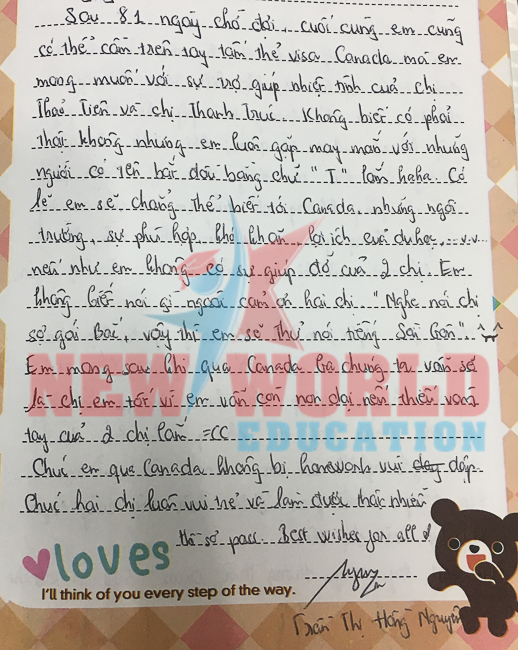 Sau 81 ngày chờ đợi, cuối cùng em cũng
có thể cầm trên tay tấm thẻ visa Canada mà em
mong muốn với sự trợ giúp nhiệt tình của chị
Thảo Tiên và chị Thanh Trúc. Không biết có phải
thật không nhưng em luôn gặp may mắn với những
người có tên bắt đầu bằng chữ "T" lắm haha. Có
lẽ em sẽ chẳng thể biết tới Canada, những ngôi
trường, sự phù hợp, khó khăn, lợi ích của du học,...v.v...
nếu như em không có sự giúp đỡ của 2 chị. Em
không biết nói gì ngoài cảm ơn hai chị. "Nghe nói chị
sợ gái Bắc, vậy thì em sẽ thử nói tiếng Sài Gòn"... ^.^
Em mong sau khi qua Canada ba chúng ta vẫn sẽ
là chị em tốt vì em vẫn còn non dại nên thiếu vòng
tay của 2 chị lắm =CC
Chúc em qua Canada không bị homework vùi dập.
Chúc hai chị luôn vui vẻ và làm được thật nhiều
hồ sơ pass. Best wishes for all
loves
I'll think of you every step of the way.
Trần Thị Hồng Nguyên
NEW WORLD
EDUCATION